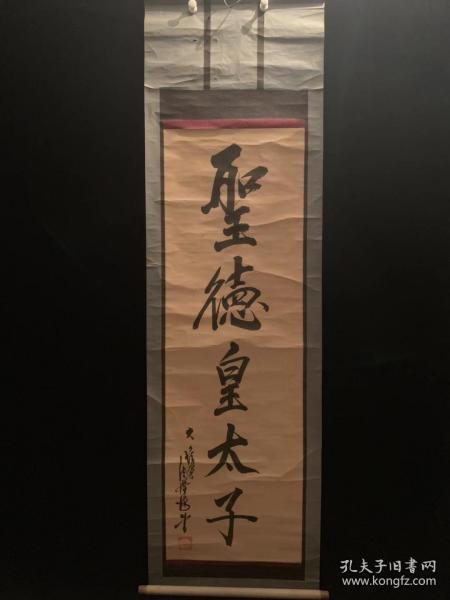 聖徳皇太子
孔夫子旧书网
www.kongfz.com